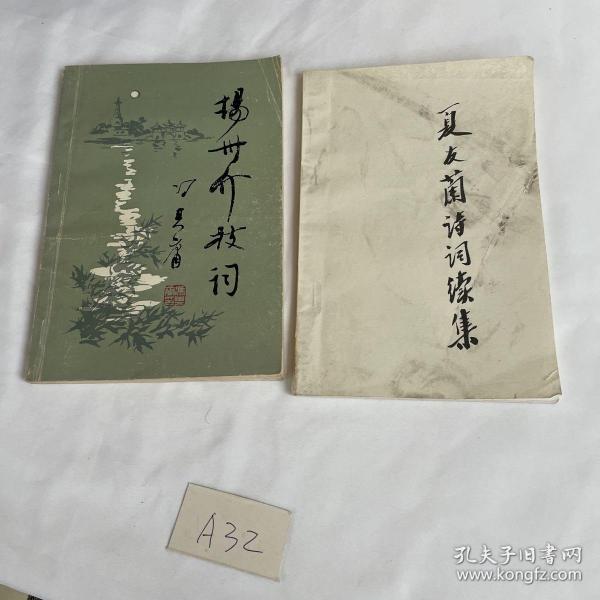 揚州竹枝词
冯其庸
夏友兰诗词续集
A32
孔夫子旧书网
www.kongfz.com